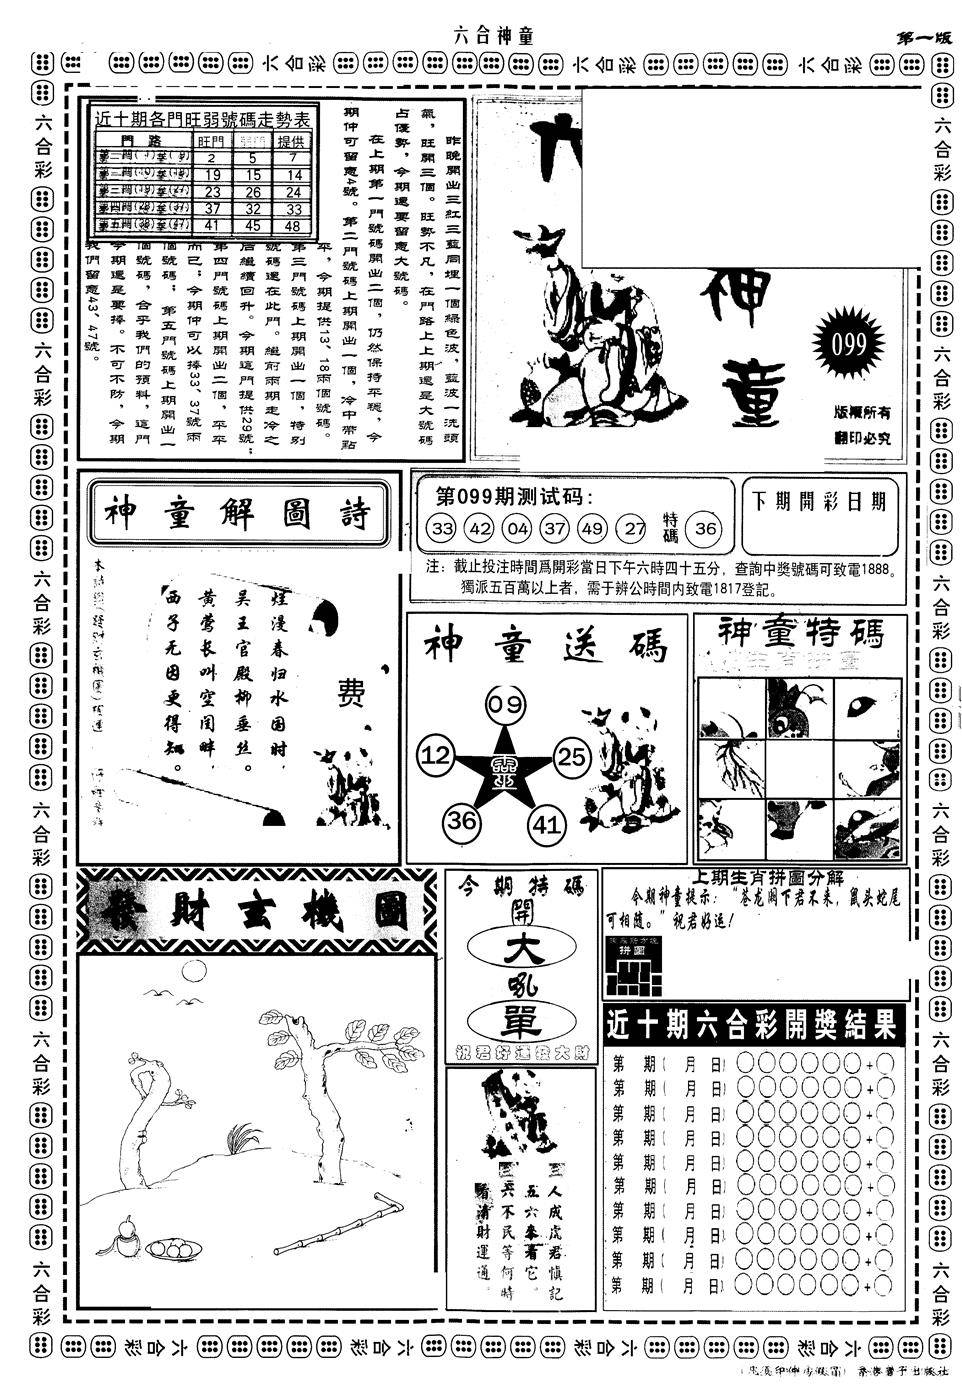 六合神童
第一版
近十期各門旺弱號碼走勢表
門 路 旺門 提供
2 5 7
19 15 14
23 26 24
37 32 33
41 45 48
昨晚開出三紅三藍同埋一個綠色波，藍波一洗頭
氣，旺開三個。旺勢不凡，在門路上上期還是大號碼
占優勢，今期還要留意大號碼。
在上期第一門號碼開出二個，仍然保持平穩，今
期仲可留意4號。第二門號碼上期開出一個，冷中帶點
平，今期提供13，18兩個號碼。
第三門號碼上期開出一個，特別
號碼還在此門。繼前兩期走冷之
后繼續回升。今期這門提供29號；
第四門號碼上期開出二個，平平
而已；今期仲可以捧33，37號兩
個號碼；第五門號碼上期開出一
個號碼，合乎我們的預料，這門
今期還是要捧。不可不防，今期
我們留意43，47號。
神
童
099
版權所有
翻印必究
神童解圖詩
爛漫春归水国时，
吴王官殿柳垂丝。
黄莺长叫空闺畔，
西子无因更得知。
费
第099期测试码：
33 42 04 37 49 27 特碼 36
下期開彩日期
注：截止投注時間爲開彩當日下午六時四十五分，查詢中獎號碼可致電1888。
獨派五百萬以上者，需于辨公時間内致電1817登記。
神童送碼
09
12
25
靈
36
41
神童特碼
生肖拼圖
發財玄機圖
今期特碼
開
大
吼
單
祝君好運發大財
上期生肖拼圖分解
今期神童提示：“苍龙阙下君不来，鼠头蛇尾
可相随。”祝君好运！
拼圖
人成虎君慎記
五六來看它。
六不民等何時
看清財運通。
近十期六合彩開獎結果
第 期（ 月 日） +
第 期（ 月 日） +
第 期（ 月 日） +
第 期（ 月 日） +
第 期（ 月 日） +
第 期（ 月 日） +
第 期（ 月 日） +
第 期（ 月 日） +
第 期（ 月 日） +
第 期（ 月 日） +